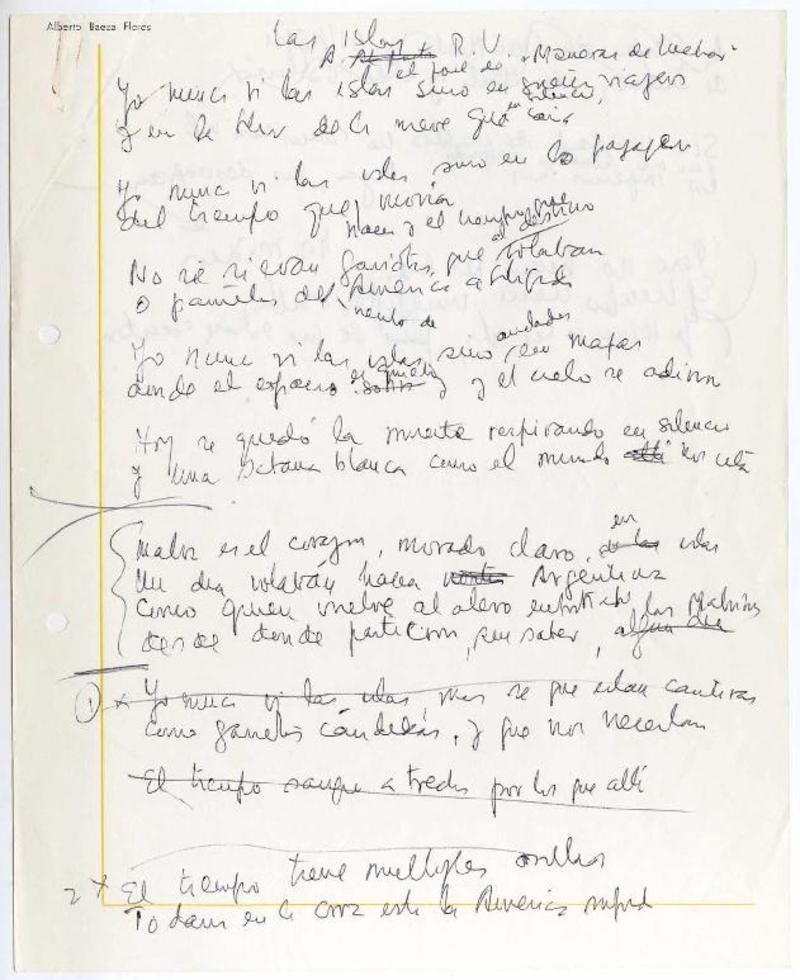 Alberto Baeza Flores
Las Islas
A R. V. "Maneras de luchar"
el poeta de
Yo nunca vi las islas sino en sueños viajeros
silencio,
y en la flor de la nieve que en caía
Yo nunca vi las islas sino en los pasajes
del tiempo que movía
hacia y el tiempo que
destino
No sé si eran gaviotas que volaban
o pañuelos de América afligida
viento de
Yo nunca vi las islas sino en mapas
donde el espacio es sueño y el cielo se adivina
Hoy se quedó la muerte respirando en silencio
y una sotana blanca como el mundo allá
Malva es el corazón, morado claro, en islas
Un día volarán hacia Argentina
Como quien vuelve al alero las Malvinas
desde donde partieron, sin saber, algún día
1 x Yo nunca vi las islas, mas se que están cautivas
como gaviotas cándidas, y que nos necesitan
El tiempo sangre a tredes por los que allí
2 x El tiempo tiene múltiples orillas
Todavía en la cruz está la América